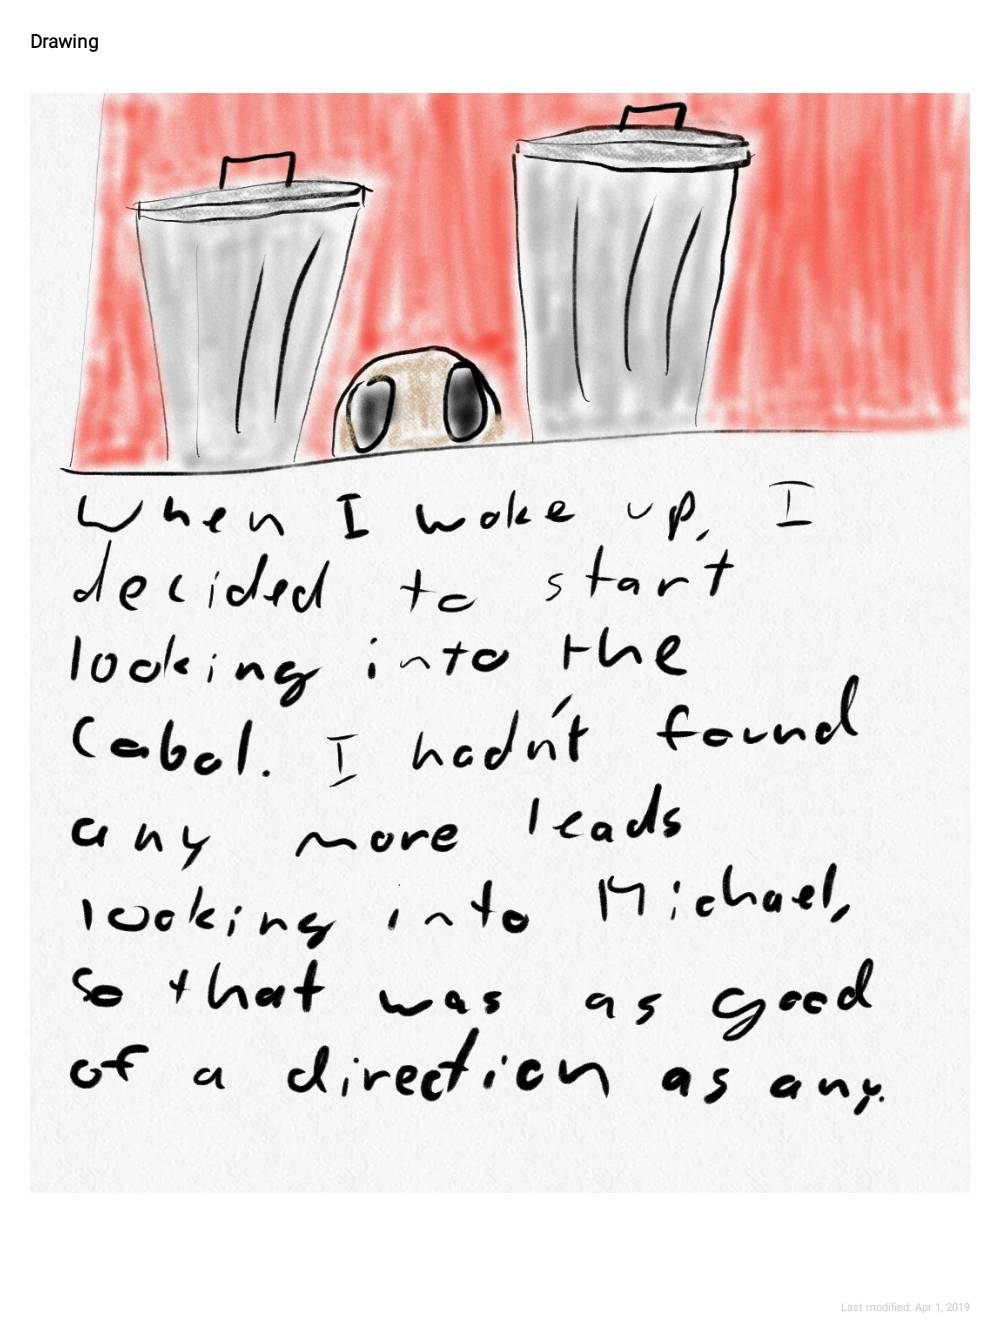 Drawing
When I woke up, I
decided to start
looking into the
Cabal. I hadn't found
any more leads
looking into Michael,
so that was as good
of a direction as any.
Last modified: Apr 1, 2019